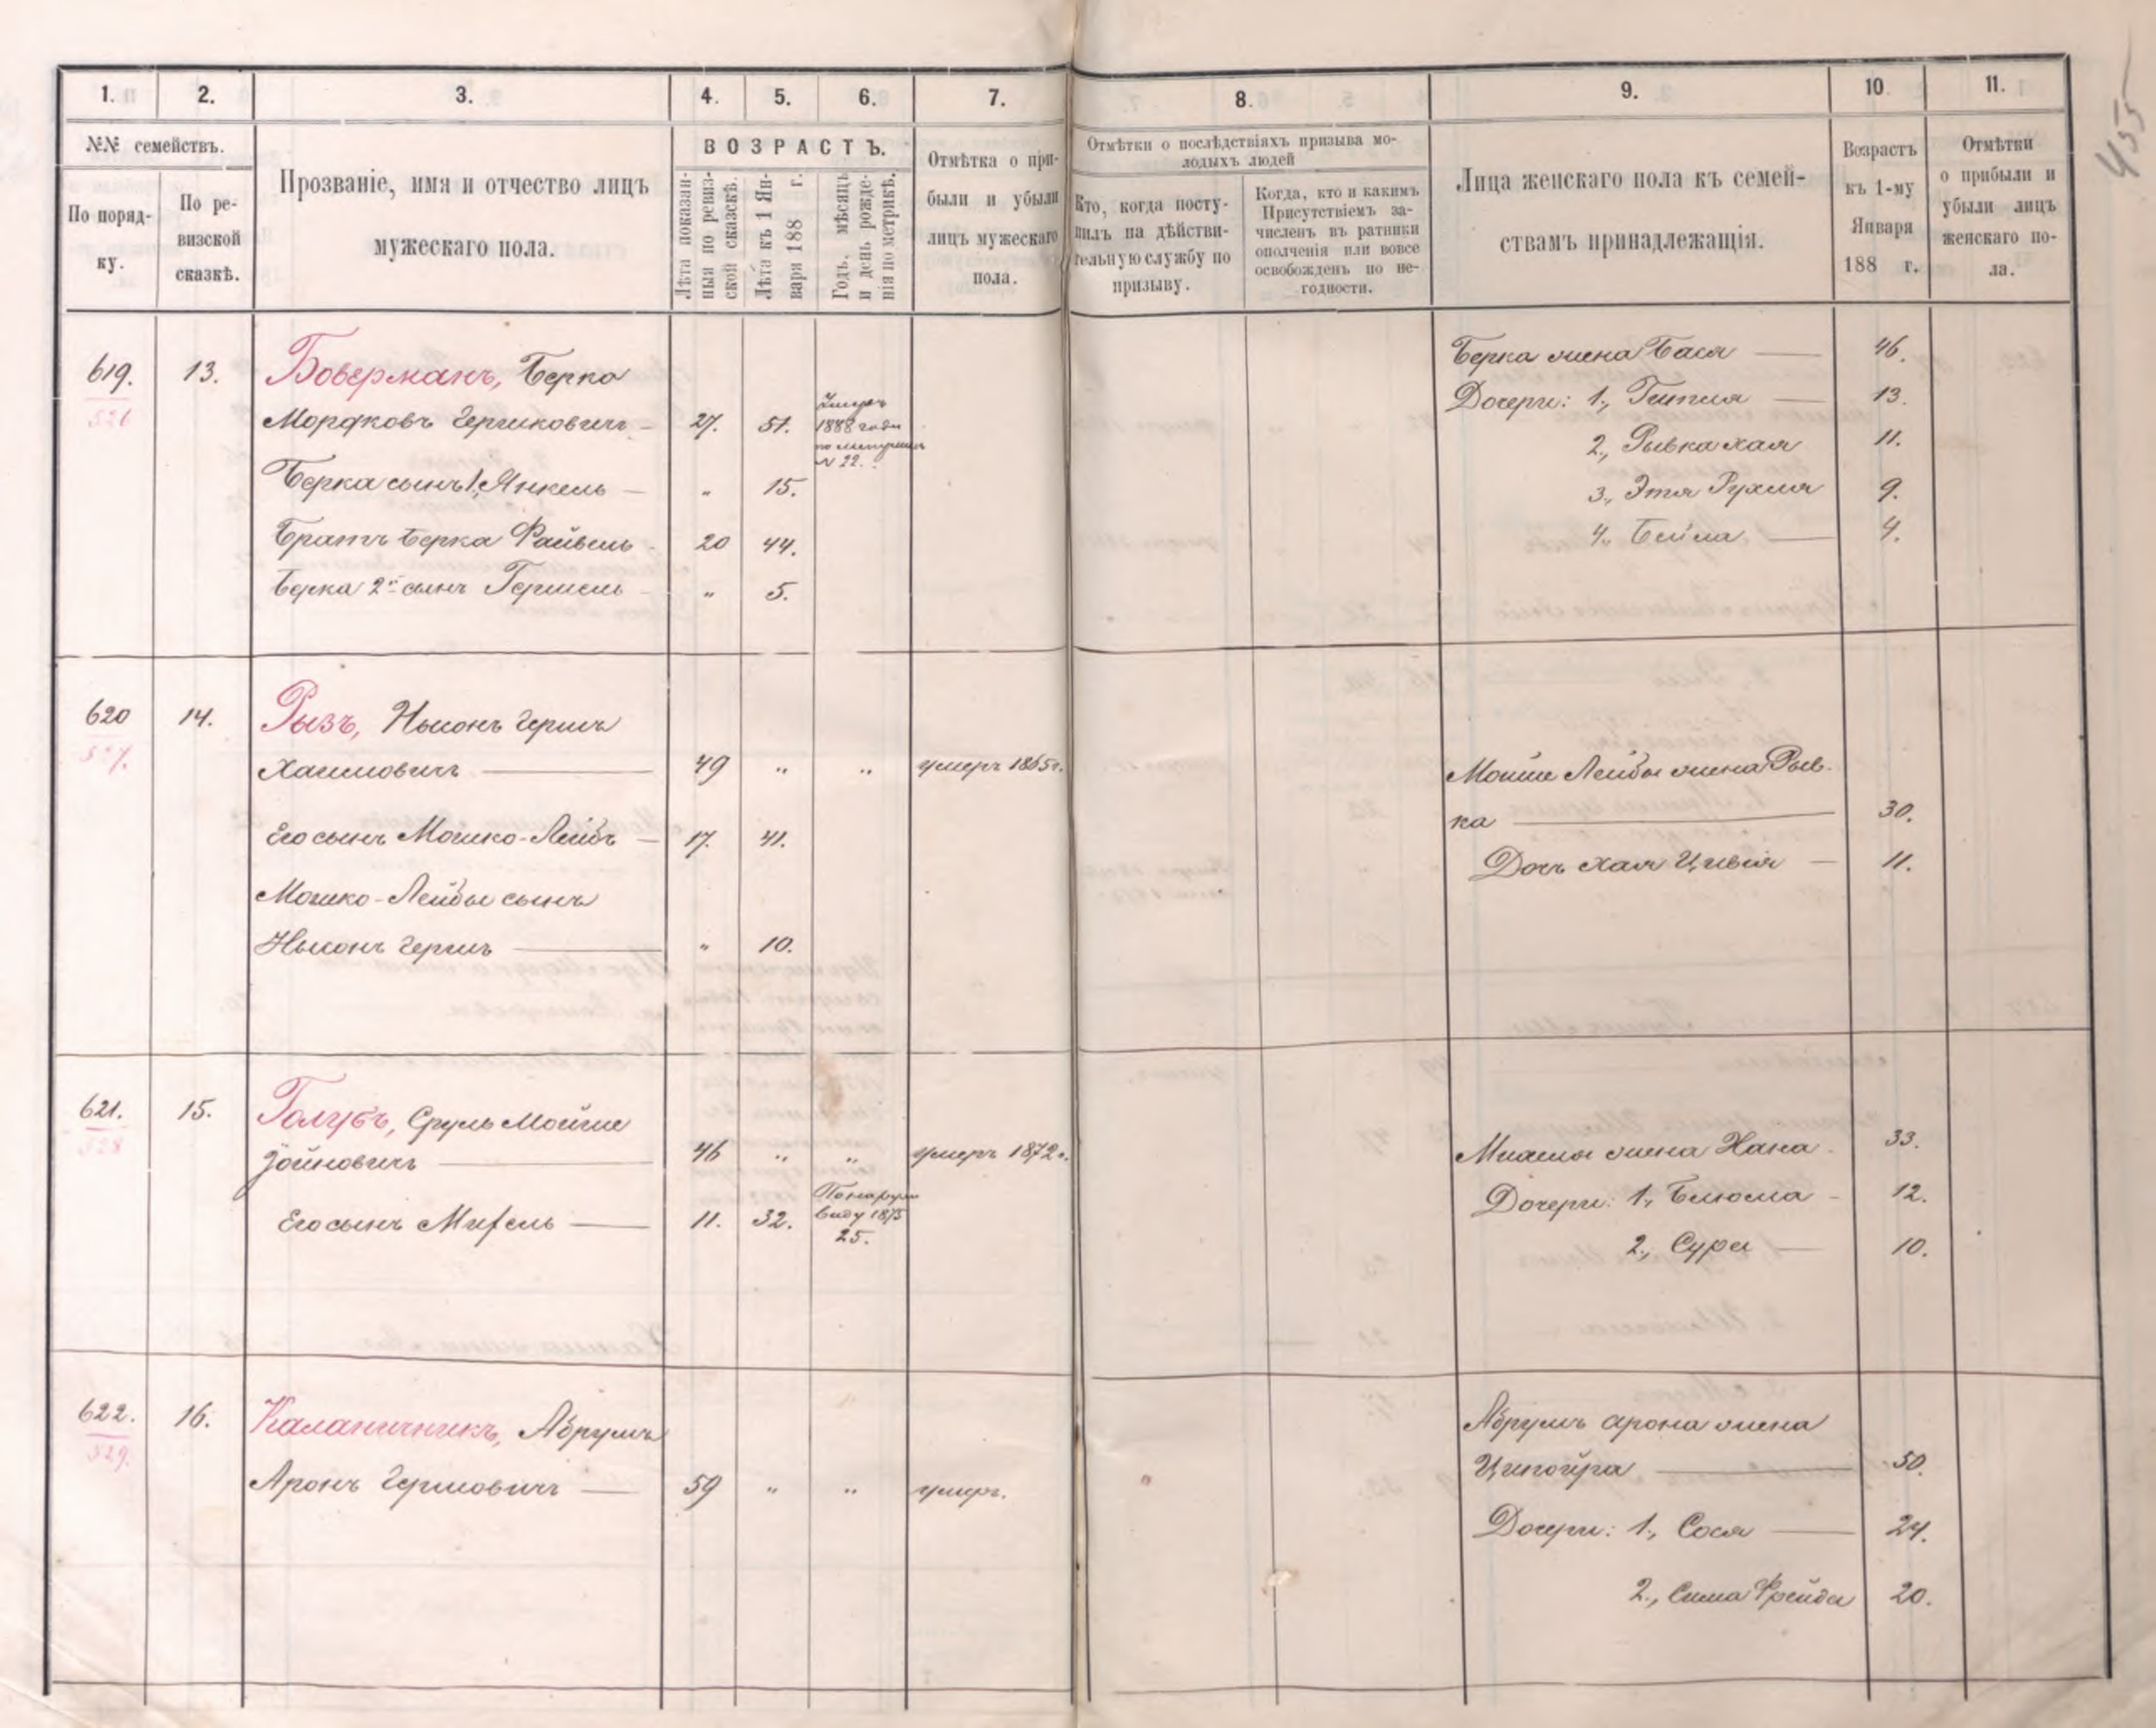 455
1. 2. 3. 4. 5. 6. 7. 8. 9. 10 11.
№№ семействъ.
По поряд-
ку.
По ре-
визской
сказкѣ.
Прозваніе, имя и отчество лицъ
мужескаго пола.
ВОЗРАСТЪ.
Лѣта показан-
ныя по ревиз-
ской сказкѣ.
Лѣта къ 1 Ян-
варя 188 г.
Годъ, мѣсяцъ
и день рожде-
нія по метрикѣ.
Отмѣтка о при-
были и убыли
лицъ мужескаго
пола.
Отмѣтки о послѣдствіяхъ призыва мо-
лодыхъ людей
Кто, когда посту-
пилъ на дѣйстви-
тельную службу по
призыву.
Когда, кто и какимъ
Присутствіемъ за-
численъ въ ратники
ополченія или вовсе
освобожденъ по не-
годности.
Лица женскаго пола къ семей-
ствамъ принадлежащія.
Возрастъ
къ 1-му
Января
188 г.
Отмѣтки
о прибыли и
убыли лицъ
женскаго по-
ла.
619. 13. Боверманъ, Берко
526
Мордковъ Гершковичъ 27. 51.
Умеръ
1888 года
по метрикѣ
№ 22.
Берка сынъ 1, Янкель — „ 15.
Братъ Берка Файвель 20 44.
Берка 2й сынъ Гершель „ 5.
Берка жена Бася — 46.
Дочери: 1, Гитля — 13.
2, Рывка хая 11.
3, Этя Рухля 9.
4, Бейла — 4.
620 14. Рызъ, Нысонъ Герш
527.
Хаимовичъ — 49 „ „ умеръ 1865 г.
Его сынъ Мошко-Лейбъ — 17. 41.
Мошко-Лейбы сынъ
Нысонъ Герш — „ 10.
Мошие Лейбы жена Рыв-
ка — 30.
Дочь хая Цивія — 11.
621. 15. Голубъ, Сруль Мойше
528
Іойновичъ — 46 „ „ умеръ 1872 г.
Его сынъ Михель — 11. 32.
По наруж
виду 1875
25.
жена Хана 33.
Дочери: 1, Блюма 12.
2, Сура — 10.
622. 16. Каланичникъ, Абрумъ
529.
Аронъ Гершовичъ — 59 „ „ умеръ.
Абрумъ Арона жена
Ципойра — 50.
Дочери: 1, Сося — 24.
2, Сима Фрейда 20.